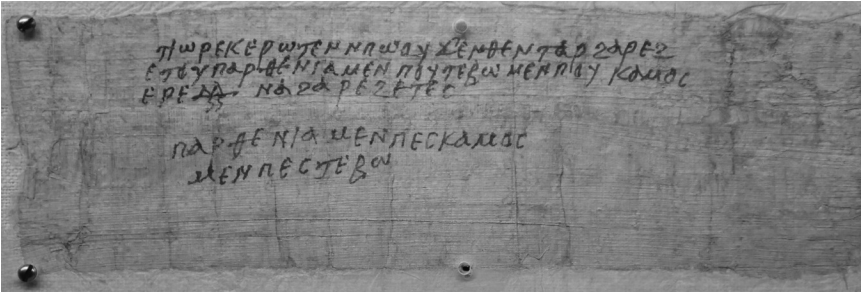 ⲡⲱⲣⲉⲕⲉⲣⲱⲧⲉⲛⲛⲡⲱⲟⲩ ϫⲉⲛⲑⲉⲛⲧⲁⲣⲍⲁⲣⲉⲍ
ⲉⲧⲟⲩⲡⲁⲣⲑⲉⲛⲓⲁⲙⲉⲛⲡⲟⲩⲧⲉⲃⲱⲙⲉⲛⲡⲟⲩⲕⲁⲙⲟⲥ
ⲉⲣⲉ ⲛⲁⲍⲁⲣⲉⲍⲉⲧⲉⲥ
ⲡⲁⲣⲑⲉⲛⲓⲁⲙⲉⲛⲡⲉⲥⲕⲁⲙⲟⲥ
ⲙⲉⲛⲡⲉⲥⲧⲉⲃⲱ